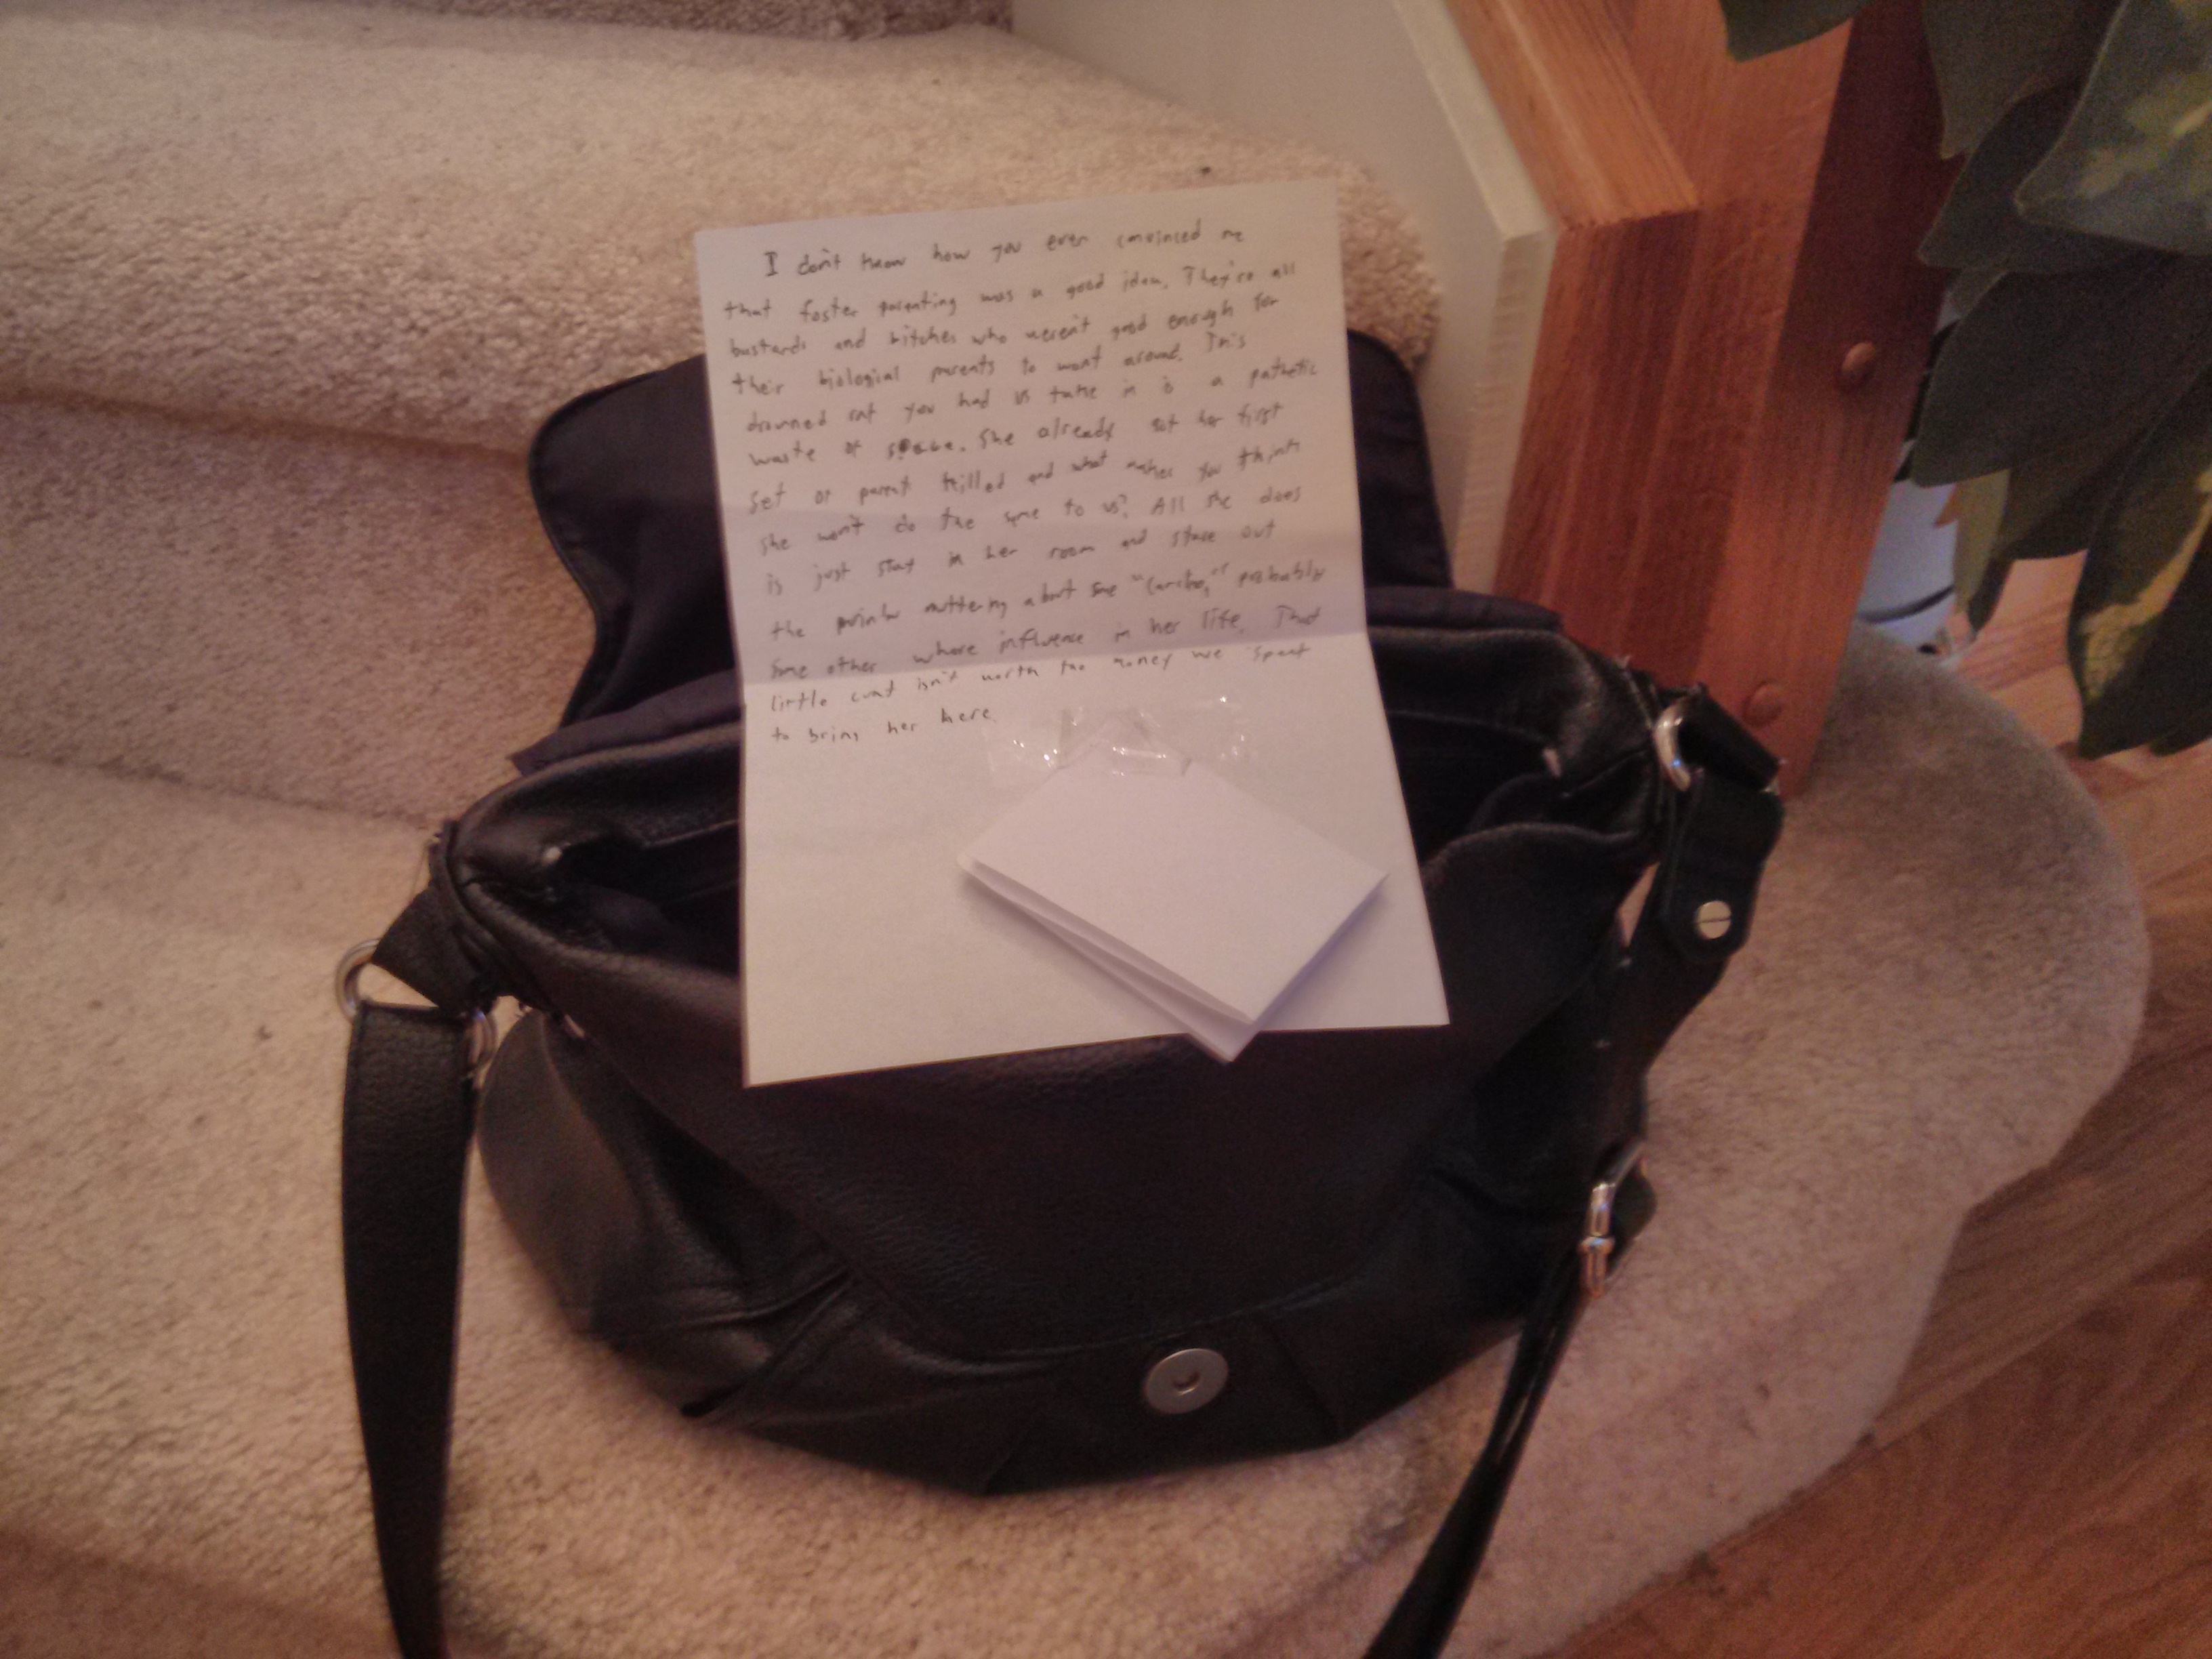 I don't know how you even convinced me
that foster parenting was a good idea. They're all
bastards and bitches who weren't good enough for
their biological parents to want around. This
drowned rat you had us take in is a pathetic
waste of space. She already got her first
set of parents killed and what makes you think
she won't do the same to us? All she does
is just stay in her room and stare out
the window muttering about some probably
some other whore influence in her life. That
little cunt isn't worth the money we spent
to bring her here.